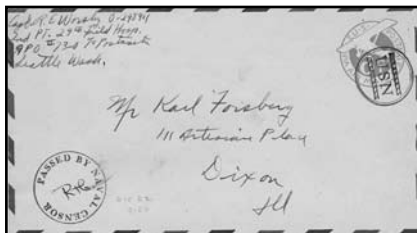 Capt. R. E. Worsby O-
2nd PT. 29th Field Hosp.
APO #730 % Postmaster
Seattle Wash.
USN
Mr Karl Forsberg
111 Artesian Place
Dixon
Ill
PASSED BY NAVAL CENSOR